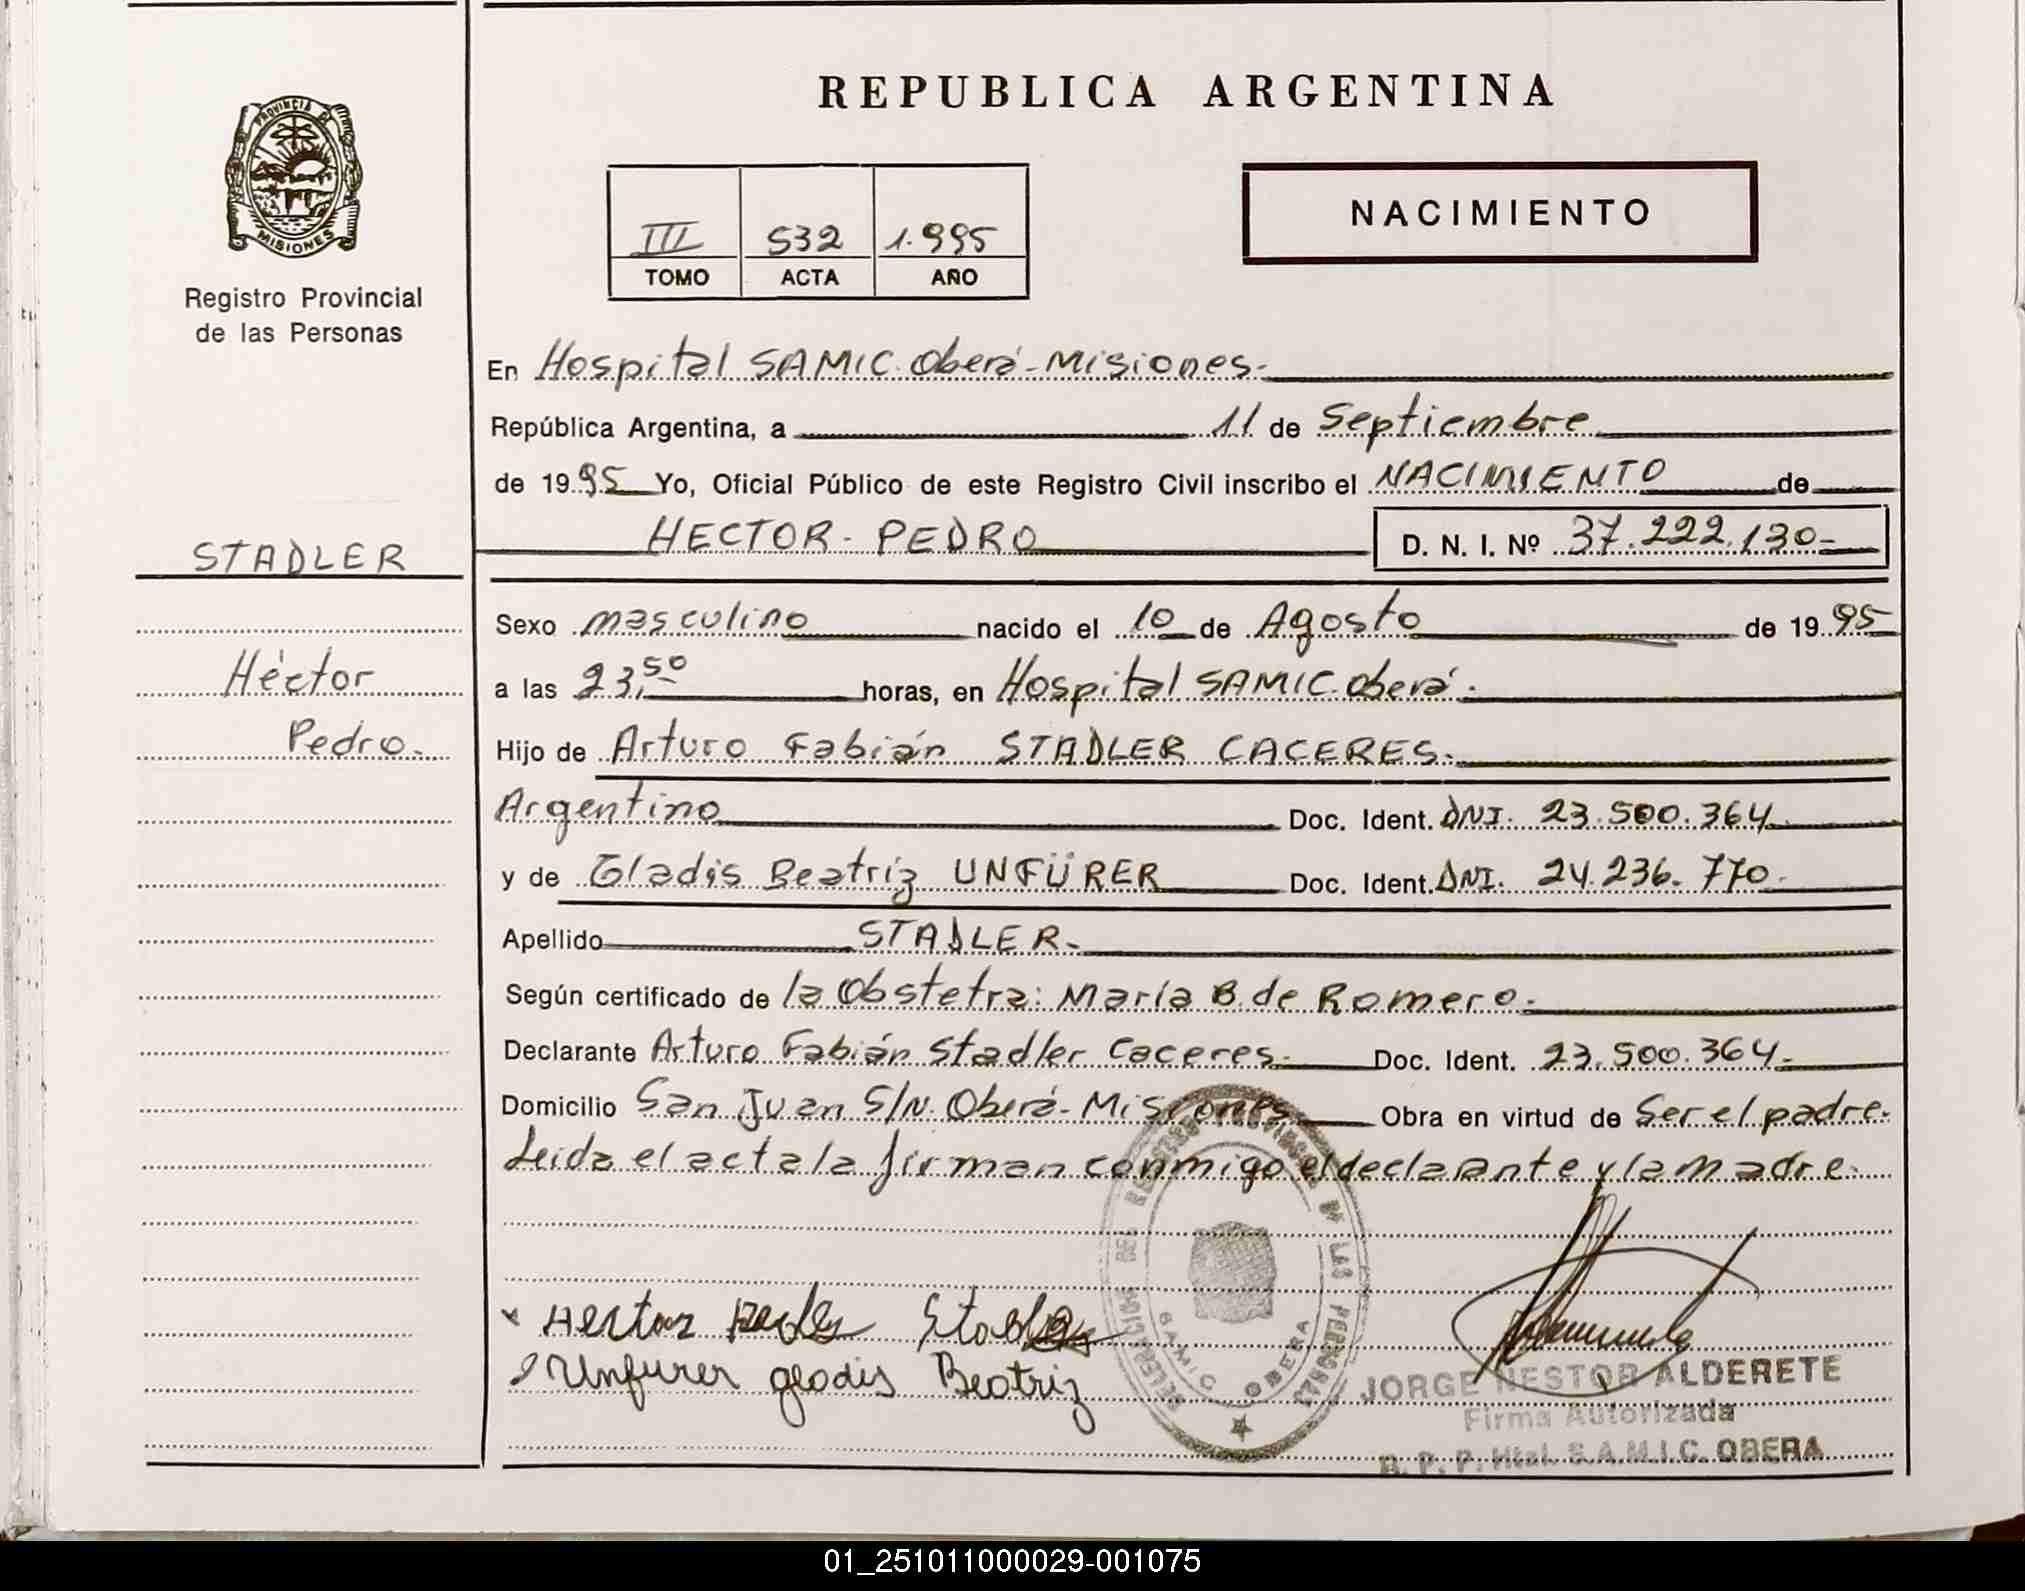 REPUBLICA ARGENTINA
PROVINCIA DE
MISIONES
Registro Provincial
de las Personas
NACIMIENTO
III 532 1.995
TOMO ACTA AÑO
En Hospital SAMIC. Oberá-Misiones.-
República Argentina, a 11 de Septiembre
de 1995 Yo, Oficial Público de este Registro Civil inscribo el NACIMIENTO de
HECTOR - PEDRO D. N. I. Nº 37.222.130-
STADLER
Héctor
Pedro.-
Sexo masculino nacido el 10 de Agosto de 1995
a las 23,50 horas, en Hospital SAMIC. Oberá.-
Hijo de Arturo Fabián STADLER CACERES.-
Argentino Doc. Ident. DNI. 23.500.364
y de Gladis Beatriz UNFÜRER Doc. Ident. DNI. 24.236.770.-
Apellido STADLER.-
Según certificado de la Obstetra: María B. de Romero.-
Declarante Arturo Fabián Stadler Caceres.- Doc. Ident. 23.500.364.-
Domicilio San Juan S/N. Oberá-Misiones Obra en virtud de Ser el padre.
Leída el acta la firman conmigo el declarante y la madre.
Unfurer gladis Beatriz
SAMIC OBERA
JORGE NESTOR ALDERETE
Firma Autorizada
R. P. P. Htal. S.A.M.I.C. OBERA
01_251011000029-001075